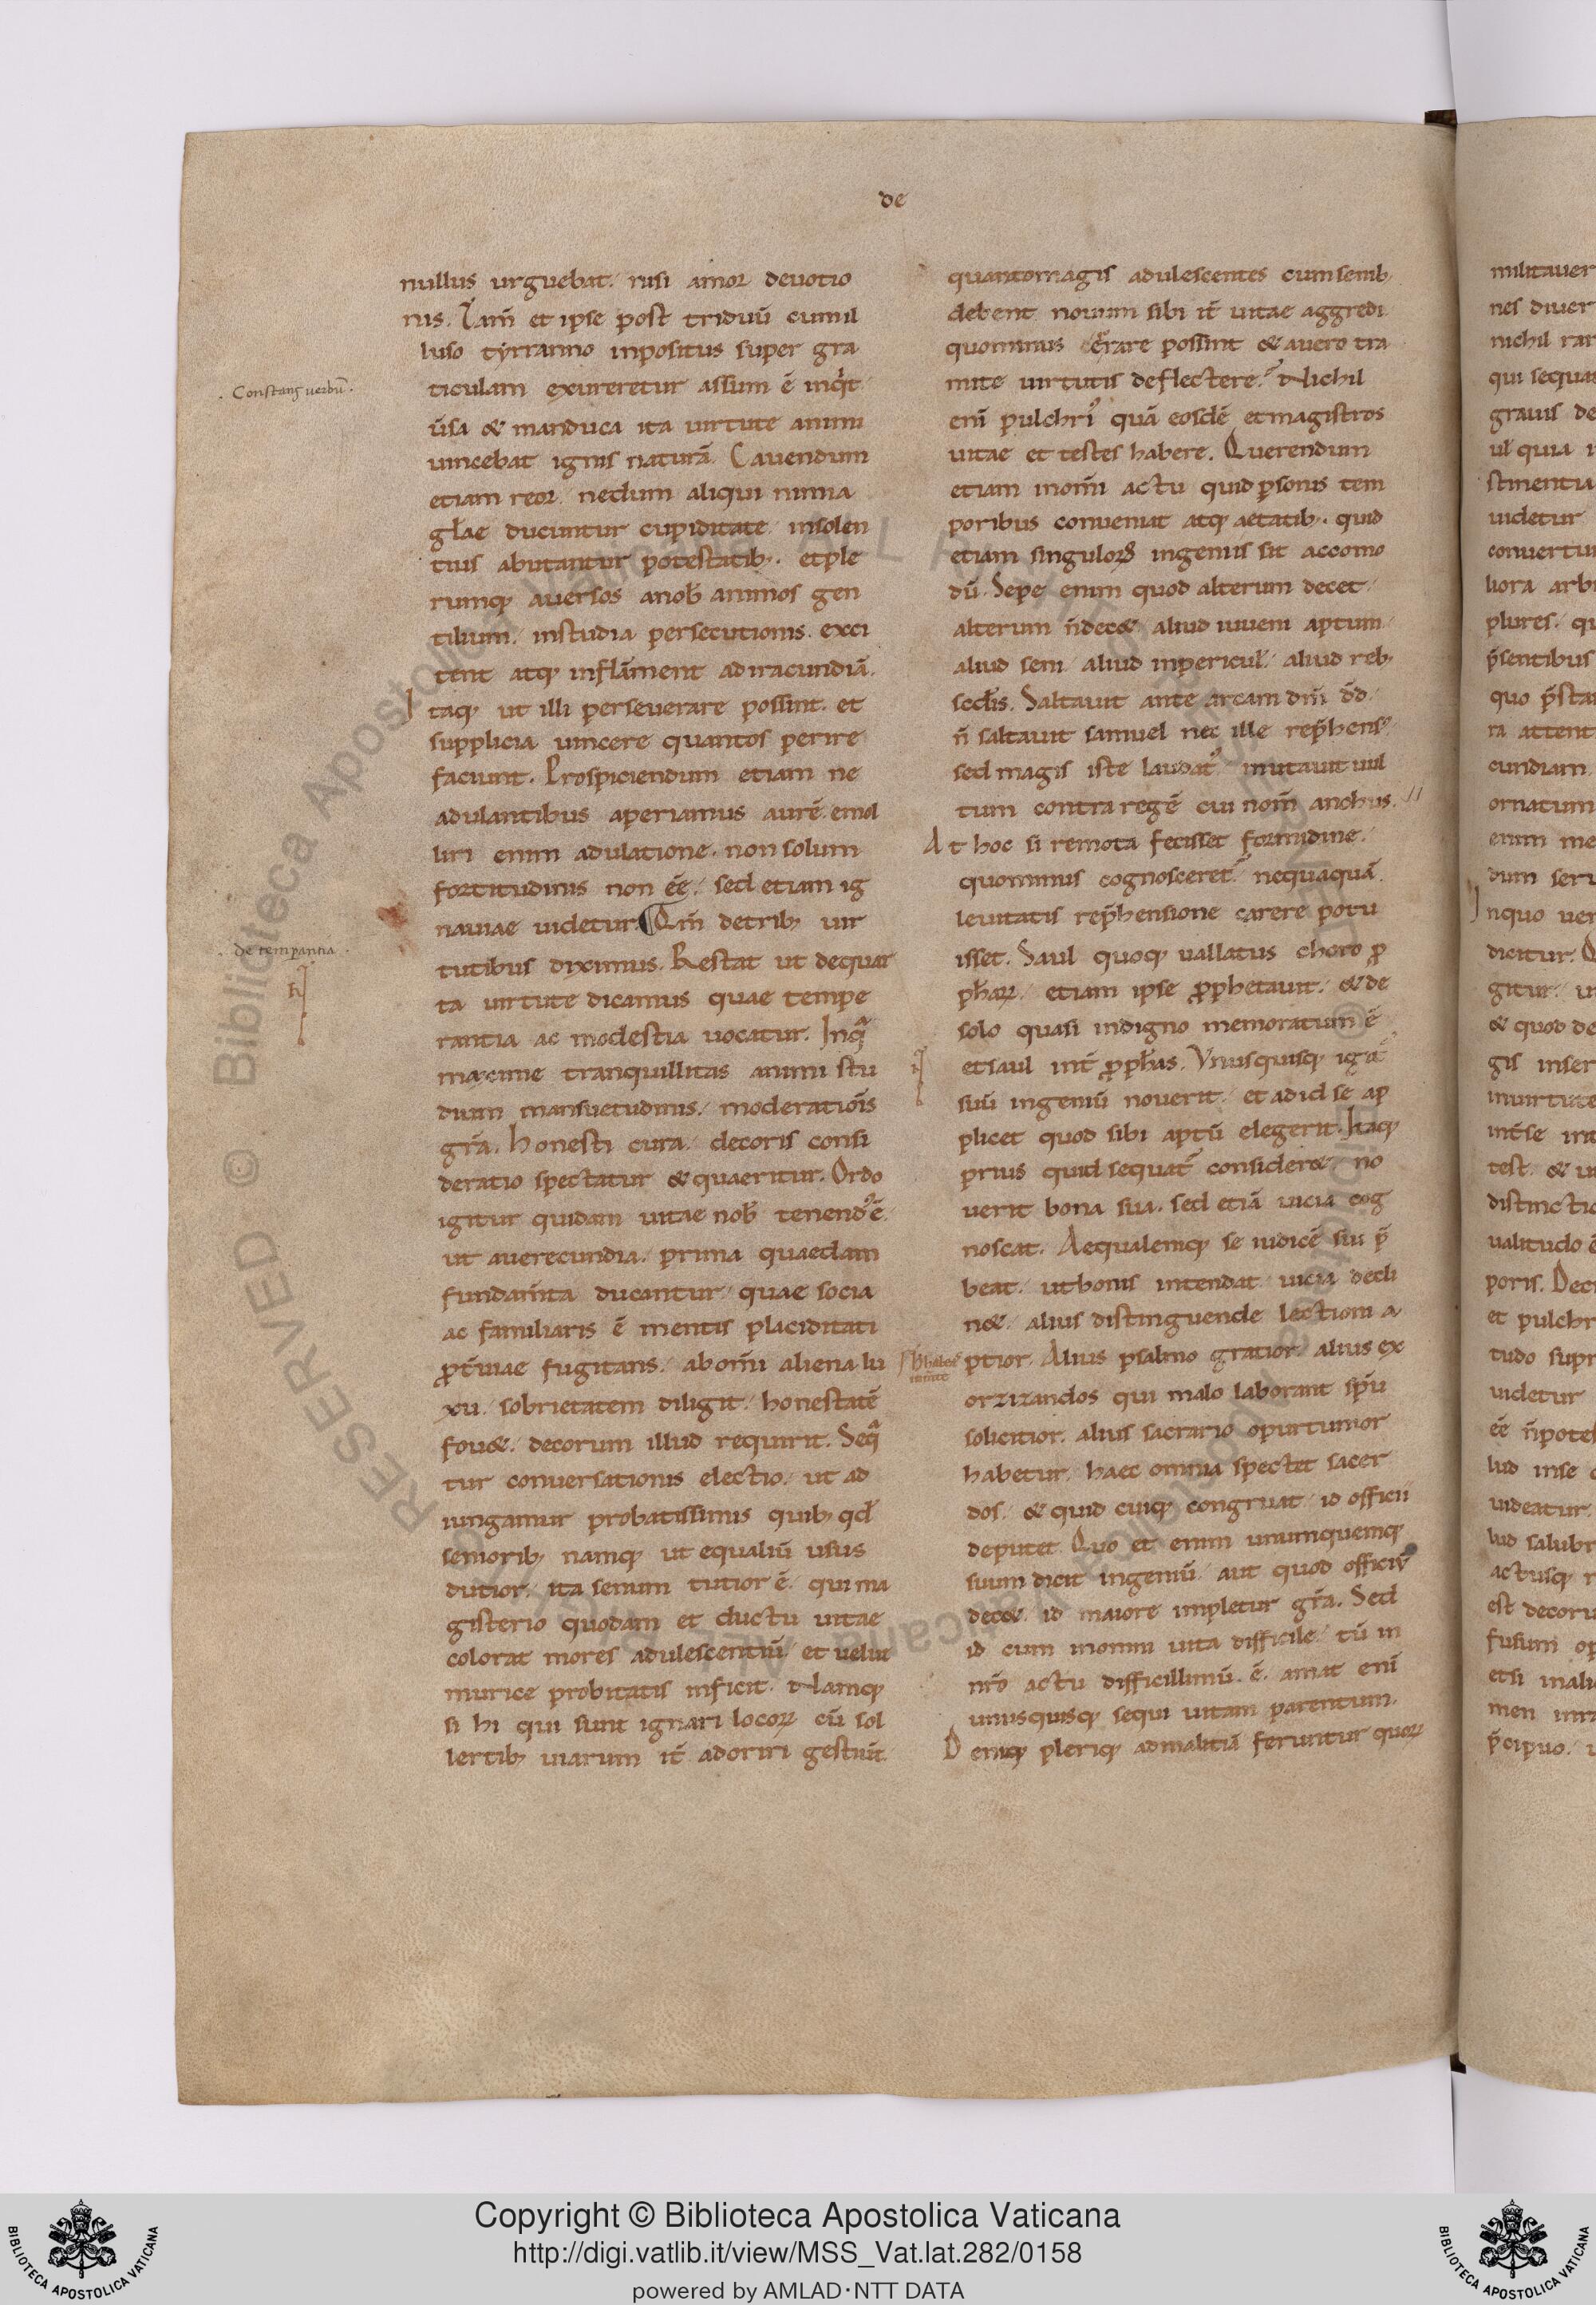 de
nullus urguebat. nisi amor deuotio
nis. Tam̄ et ipse post triduū cum il
luso tyrranno inpositus super gra
ticulam exureretur assum ē inq̇t
ūsa & manduca ita uirtute animi
uincebat ignis naturā. Cauendum
etiam reor. nedum aliqui nimia
gl̄ae ducuntur cupiditate insolen
tius abutantur potestatib;. et ple
rumq; auersos a nob̄ animos gen
tilium. in studia persecutionis. exci
tent atq; inflāment ad iracundiā.
Itaq; ut illi perseuerare possint. et
supplicia uincere quantos perire
faciunt. Prospiciendum etiam ne
adulantibus aperiamus aurē. emol
liri enim adulatione. non solum
fortitudinis non ēē. sed etiam ig
nauiae uidetur. Qm̄ de trib; uir
tutibus diximus. Restat ut de quar
ta uirtute dicamus quae tempe
rantia ac modestia uocatur. In qᵃ
maxime tranquillitas animi stu
dium mansuetudinis. moderatiōis
gr̄a. honesti cura. decoris consi
deratio spectatur & quaeritur. Ordo
igitur quidam uitae nob̄ tenend᾿ ē.
ut a uerecundia. prima quaedam
fundam̄ta ducantur quae socia
ac familiaris ē mentis placiditati
p̱t̄uiae fugitans. ab om̄i aliena lu
xu. sobrietatem diligit. honestatē
fou&. decorum illud requirit. Seqᵃ
tur conuersationis electio. ut ad
iungamur probatissimis quib; qd̄
seniorib; namq; ut equaliū usus
dutior. ita senum tutior ē. qui ma
gisterio quodam et ductu uitae
colorat mores adulescentiū et uelut
murice probitatis inficit. Namq;
si hi qui sunt ignari locoꝝ cū sol
lertib; uiarum it̄ adoriri gestiūt.
quanto magis adulescentes cum senib;
debent nouum sibi it̄ uitae aggredi
quominus errare possint & a uero tra
mite uirtutis deflectere. Nichil
eni᷑ pulchri᾿ quā eosdē et magistros
uitae et testes habere. Querendum
etiam in om̄i actu quid p̱sonis tem
poribus conueniat atq; aetatib;. quid
etiam singuloꝝ ingeniis sit accomo
dū. Sepe enim quod alterum decet
alterum n̄ dec& aliud iuueni aptum
aliud seni. aliud in pericul̄. aliud reb;
secd̄is. Saltauit ante arcam dn̄i dd̄.
n̄ saltauit samuel nec ille rep̄hens᾿
sed magis iste laudat᾿. mutauit uul
tum contra regē cui nom̄ anchus.
At hoc si remota fecisset formidine.
quominus cognosceret᾿. nequaquā.
leuitatis rep̄hensione carere potu
isset. Saul quoq; uallatus choro p̱
ph̄aꝝ. etiam ipse p̱phetauit. & de
solo quasi indigno memoratum ē
et saul int̄ p̱ph̄as. Vnusquisq; igᵃ
suū ingeniū nouerit. et ad id se ap
plicet quod sibi aptū elegerit. Itaq;
prius quid sequat᾿ consider& no
uerit bona sua. sed etiā uicia cog
noscat. Aequalemq; se iudicē sui p̄
beat. ut bonis intendat uicia decli
n&. alius distinguende lectioni a
ptior. Alius psalmo gratior. alius ex
orzizandos qui malo laborant sp̄u
solicitior. alius sacrario oportunior
habetur. haec omnia spectet sacer
dos. & quid cuiq; congruat. id officii
deputet Quo et enim unumquemq;
suum dicit ingeniū. aut quod officiū
dec&. id maiore impletur gr̄a. Sed
id cum in omni uita difficile. tū in
nr̄o actu difficillimū. ē. amat eni᷑
unusquisq; sequi uitam parentum.
Deniq; pleriq; ad militiā feruntur quoꝝ
Constang uerbū.
de temperantia.
Copyright © Biblioteca Apostolica Vaticana
http://digi.vatlib.it/view/MSS_Vat.lat.282/0158
powered by AMLAD·NTT DATA
BIBLIOTECA APOSTOLICA VATICANA
BIBLIOTECA APOSTOLICA VATICANA